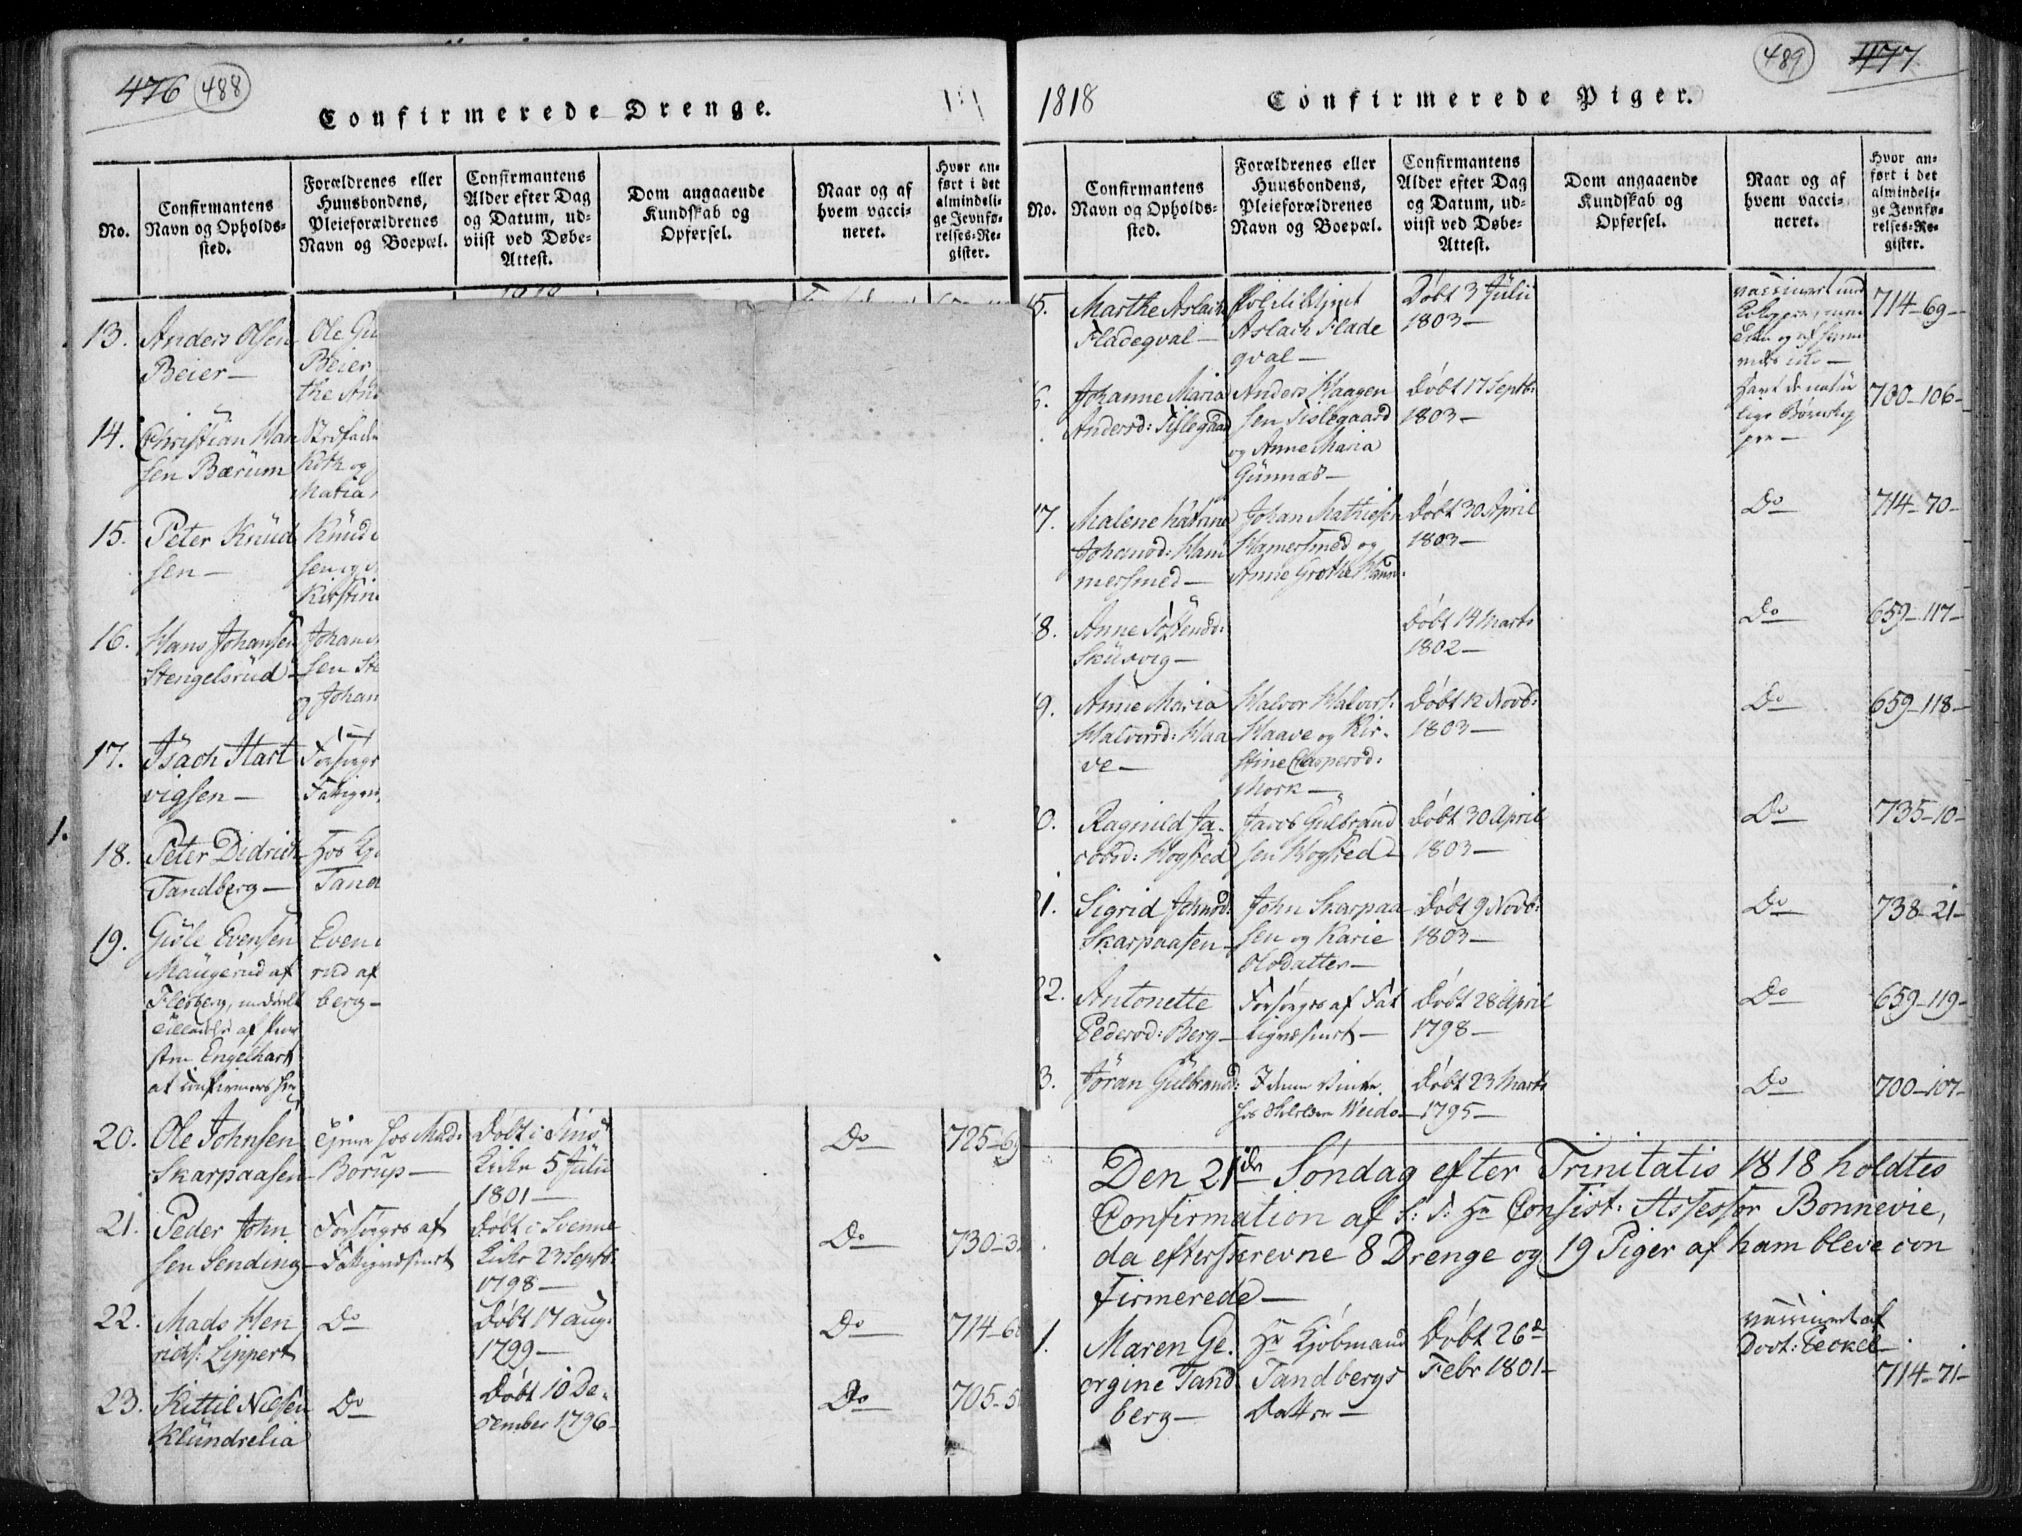 476 488
Confirmerede Drenge.
No.
Confirmantens
Navn og Opholds-
sted.
Forældrenes eller
Huusbondens,
Pleieforældrenes
Navn og Boepæl.
Confirmantens
Alder efter Dag
og Datum, ud-
viist ved Døbe-
Attest.
Dom angaaende
Kundskab og
Opførsel.
Naar og af
hvem vacci-
neret.
Hvor an-
ført i det
almindeli-
ge Jevnfø-
relses-Re-
gister.
13.
Anders Olsen
Beier—
Ole
Beier
14.
Christian Han
sen Bærum
og
Maria
15.
Peter Knud
sen—
Knud
Kirstine
16.
Hans Johansen
Stengelsrud—
sen
og Johan
17.
Isach Hart
vigsen—
18.
Peter Didrich
Tandberg—
Hos
19.
Giøle Evensen
Maugerud af
Flesberg,
af
sten Engelhart
at confirmeres
Even
rud af
berg—
20.
Ole Johnsen
Skarpaasen—
tjener hos Mad:
Borup—
Døbt i
Kirke 5 Julii
1801—
Do
725-69
21.
Peder John
sen Sending—
Forsørges af
Fattigvæsenet
Døbt i Svenne
Kirke 23 Septb:
1798—
Do
730-3
22.
Mads Hen
richs: Lippert
Do
Døbt 17 aug:
1799—
Do
714-6
23.
Kittil Nilsen
Klundrelia
Do
Døbt 10 De-
cember 1796—
Do
705-5
1.
1818
489 477
Confirmerede Piger.
No.
Confirmantens
Navn og Opholds-
sted.
Forældrenes eller
Huusbondens,
Pleieforældrenes
Navn og Boepæl.
Confirmantens
Alder efter Dag
og Datum, ud-
viist ved Døbe-
Attest.
Dom angaaende
Kundskab og
Opførsel.
Naar og af
hvem vacci-
neret.
Hvor an-
ført i det
almindeli-
ge Jevnfø-
relses-Re-
gister.
5.
Marthe Aslachs
Fladeqval—
Aslach Flade
qval—
Døbt 3 Julii
1803—
714-69—
6.
Johanne Maria
Andersd: Fislegaard
Anders Haagen
sen Fislegaard
og Anne Maria
Gunnes—
Døbt 17 Septb:
1803—
Havt de natur
lige Børnekop
per—
700-106—
17.
Malene Katrine
Johansd: Ham
mersmed—
Johan Mathiesen
Hamersmed og
Anne Grethe
Døbt 30 April
1803—
Do
714-70—
8.
Anne Tostensd:
Skusvig—
Døbt 14 Marts
1802—
Do
659-117—
9.
Anne Maria
Halvorsd: Haa
ve—
Halvor Halvors:
Haave og Kir-
stine Caspersd:
Mork—
Døbt 12 Novb:
1803—
Do
659-118—
0.
Ragnild Ja-
cobsd: Hogsted
Jacob Gulbrand
sen Hogsted—
Døbt 30 April
1803—
Do
735-10—
1.
Sigrid Johnsd:
Skarpaasen—
John Skarpaa
sen og Karie
Olsdatter—
Døbt 9 Novb:
1803—
Do
738-21—
22.
Antonette
Pedersd: Berg—
Forsørges af Fat
tigvæsenet—
Døbt 28 April
1798—
Do
659-119—
3.
Jøran Gulbrandsd:
Døbt 23 Marts
1795—
Do
700-107—
Den 21de Søndag efter Trinitatis 1818 holdtes
Confirmation af S: T: Hr Consist: Assessor Bonnevie,
da efterskrevne 8 Drenge og 19 Piger af ham bleve con
firmerede—
1.
Maren Ge-
orgine Tand
berg—
Hr Kjøbmand
Tandbergs
Datter—
Døbt 26de
Febr 1801—
vassineret af
Doct: Peckel—
714-71—